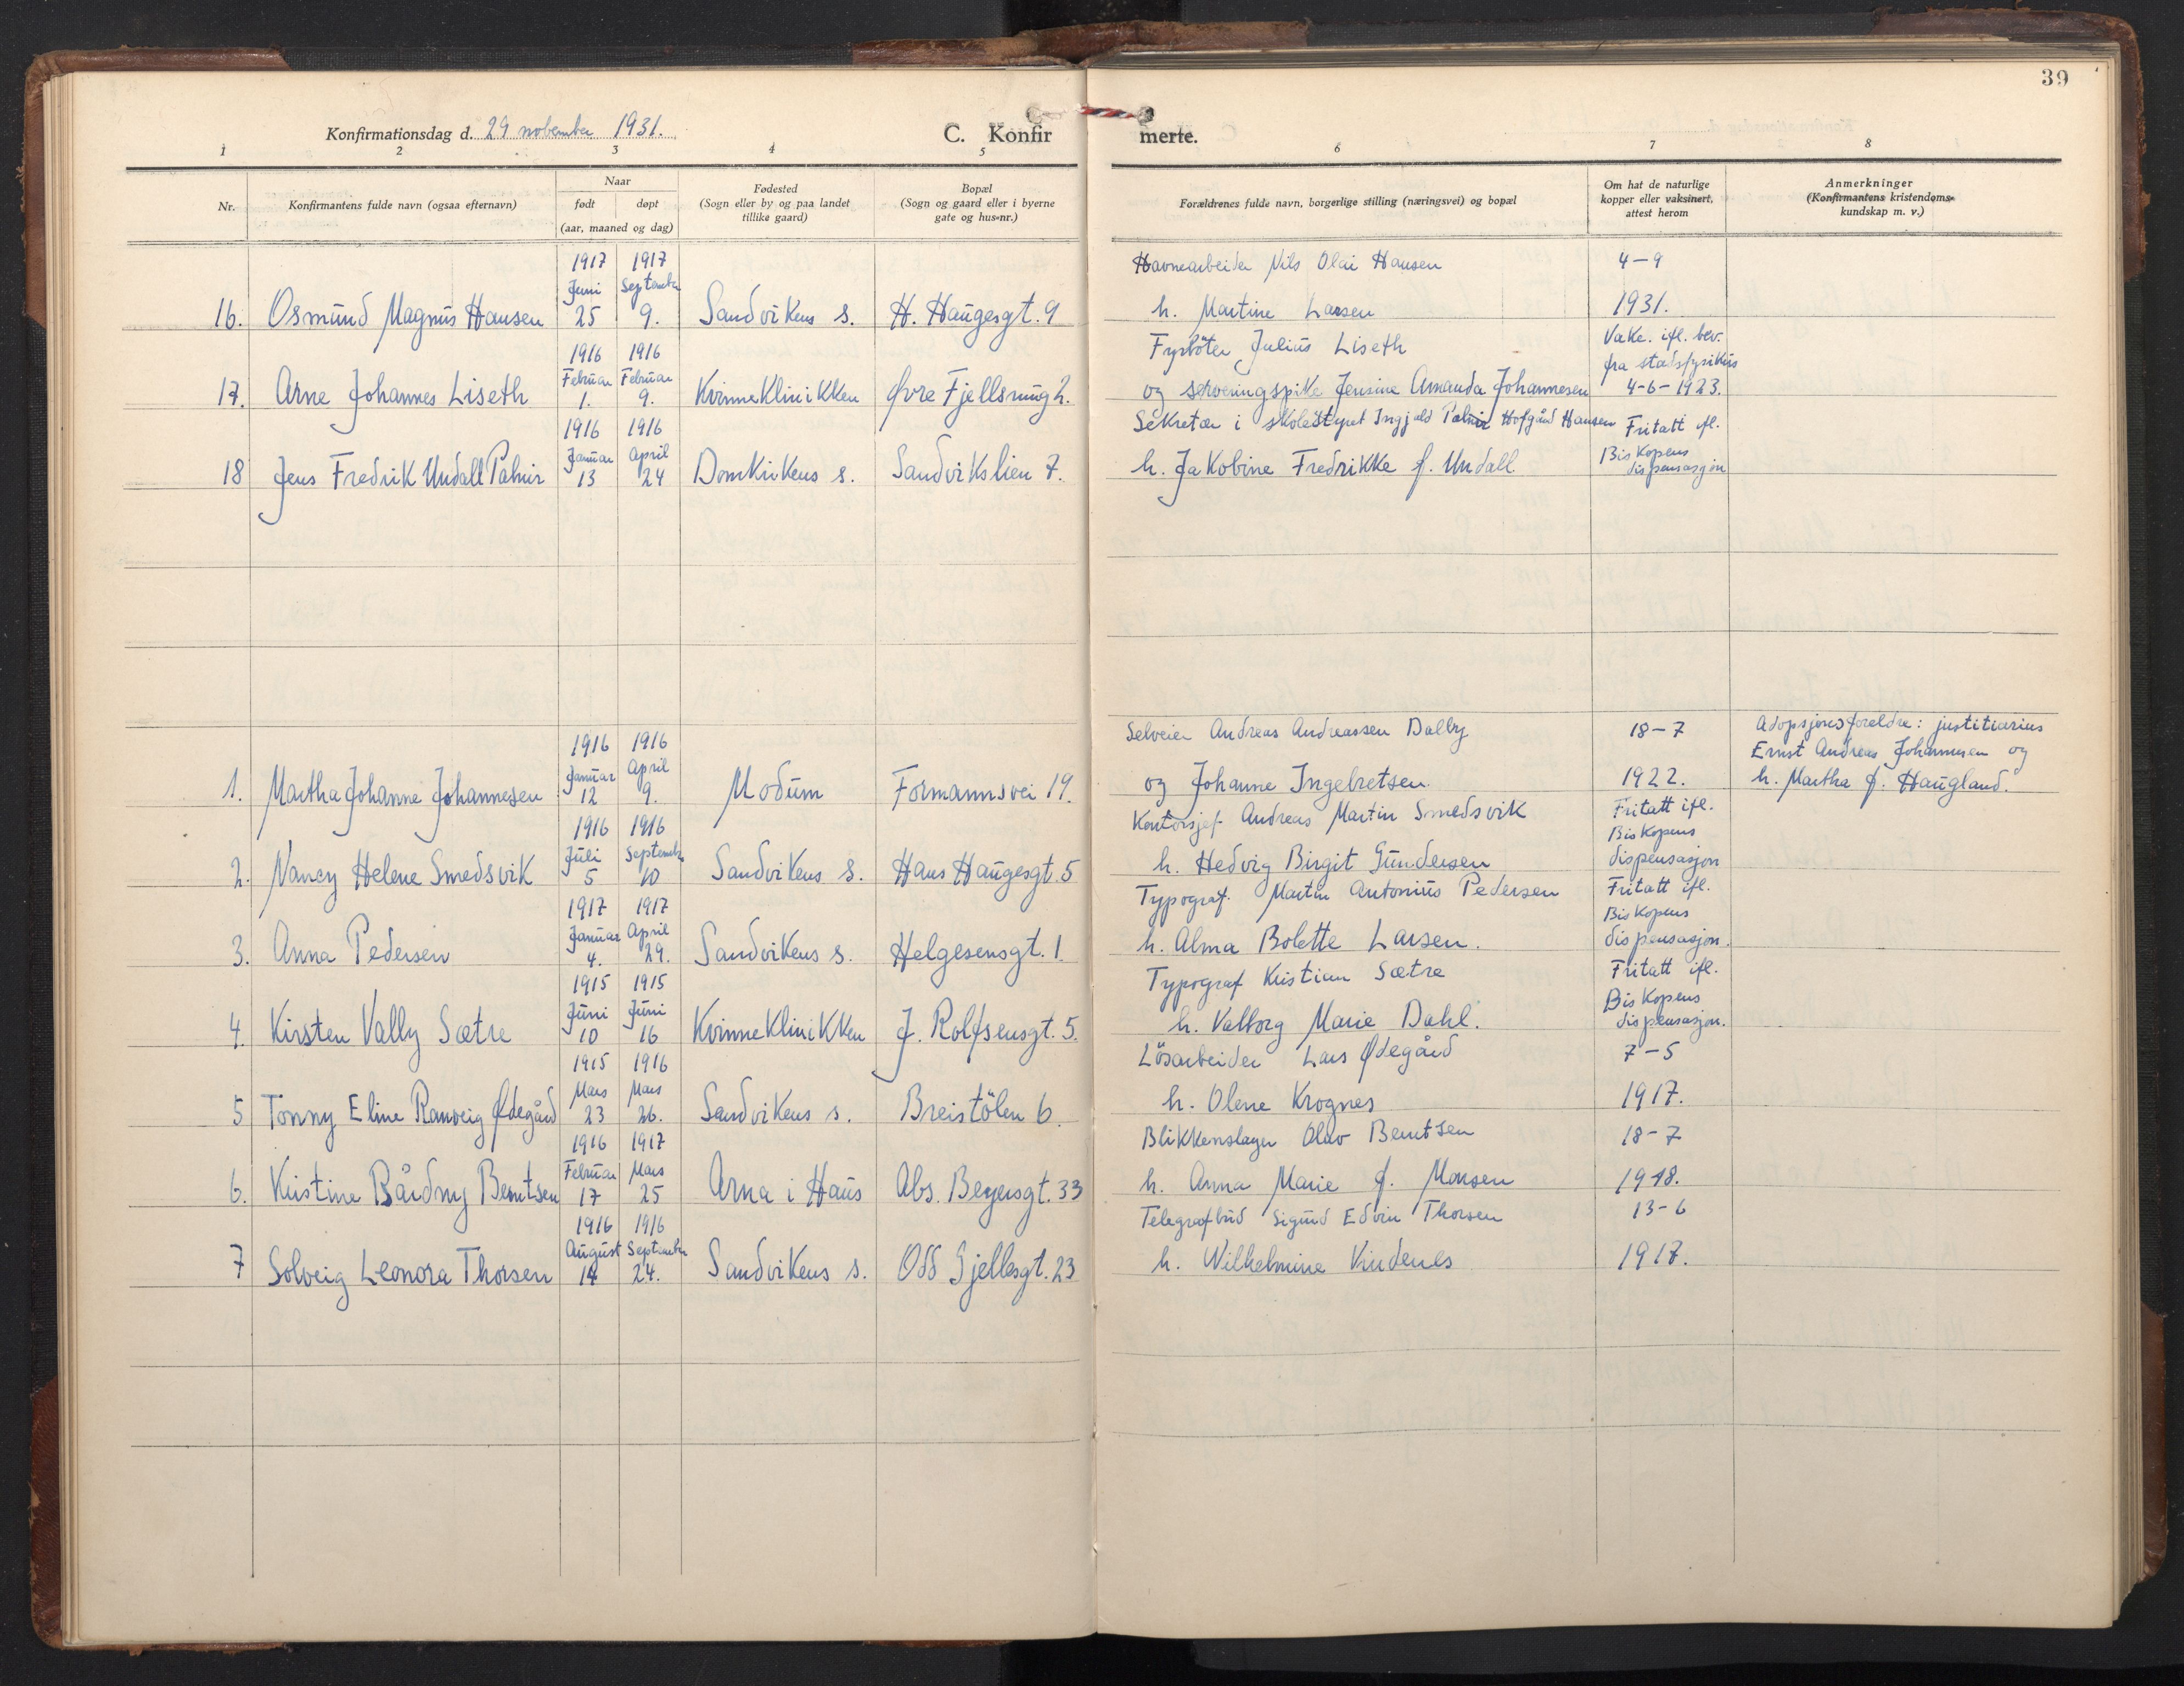 39
Konfirmationsdag d. 29 november 1931.
C. Konfirmerte.
1 2 3 4 5 6 7 8
Nr.
Konfirmantens fulde navn (ogsaa efternavn)
Naar
født døpt
(aar, maaned og dag)
Fødested
(Sogn eller by og paa landet
tillike gaard)
Bopæl
(Sogn og gaard eller i byerne
gate og hus-nr.)
Forældrenes fulde navn, borgerlige stilling (næringsvei) og bopæl
Om hat de naturlige
kopper eller vaksinert,
attest herom
Anmerkninger
(Konfirmantens kristendoms-
kundskap m. v.)
1917 1917 Havnearbeider Nils Olai Hansen 4-9
Juni September
16. Osmund Magnus Hansen 25 9. Sandvikens s. H. Haugesgt. 9 h. Martine Larsen 1931.
1916 1916 Fyrbøter Julius Liseth Vakc. ifl. bev.
Februar Februar fra stadsfysikus
17. Arne Johannes Liseth 1. 9. Kvinneklinikken Øvre Fjellsmug 2. og serveringspike Jensine Amanda Johannesen 4-6-1923.
1916 1916 Sekretær i skolestyret Ingjald Palmir Hofgård Hansen Fritatt ifl.
Januar April Biskopens
18 Jens Fredrik Undall Palmir 13 24 Domkirkens s. Sandvikslien 7. h. Jakobine Fredrikke f. Undall dispensasjon
1916 1916 Selveier Andreas Andreassen Dalby 18-7 Adopsjonsforeldre: justitiarius
Januar April Ernst Andreas Johannesen og
1. Martha Johanne Johannesen 12 9. Modum Formannsvei 19. og Johanne Ingebretsen. 1922. h. Martha f. Haugland.
1916 1916 Kontorsjef Andreas Martin Smedsvik Fritatt ifl.
Juli September Biskopens
2. Nancy Helene Smedsvik 5 10 Sandvikens s. Hans Haugesgt. 5 h. Hedvig Birgit Gundersen dispensasjon
1917 1917 Typograf. Martin Antonius Pedersen Fritatt ifl.
Januar April Biskopens
3. Anna Pedersen 4. 29. Sandvikens s. Helgesensgt. 1. h. Alma Bolette Larsen. dispensasjon.
1915 1915 Typograf Kristian Sætre Fritatt ifl.
Juni Juni Biskopens
4. Kirsten Vally Sætre 10 16 Kvinneklinikken J. Rolfsensgt. 5. h. Valborg Marie Dahl. dispensasjon.
1915 1916 Løsarbeider Lars Ødegård 7-5
Mars Mars
5 Tonny Eline Ranveig Ødegård 23 26. Sandvikens s. Breistölen 6. h. Olene Krognes 1917.
1916 1917 Blikkenslager Olav Berntsen 18-7
Februar Mars
6. Kristine Bårdny Berntsen 17 25 Arna i Haus Abs. Beyersgt. 33 h. Anna Marie f. Monsen 1918.
1916 1916 Telegrafbud Sigurd Edvin Thorsen 13-6
August September
7 Solveig Leonora Thorsen 14 24. Sandvikens s. Odd Gjellesgt. 23 h. Wilhelmine Vindenes 1917.